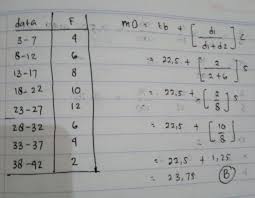 data F
3-7 4
8-12 6
13-17 8
18-22 10
23-27 12
28-32 6
33-37 4
38-42 2
mO = tb + [d1 / d1+d2] c
= 22,5 + [2 / 2+6] 5
= 22,5 + [2 / 8] 5
= 22,5 + [10 / 8]
= 22,5 + 1,25
= 23,75 (B)